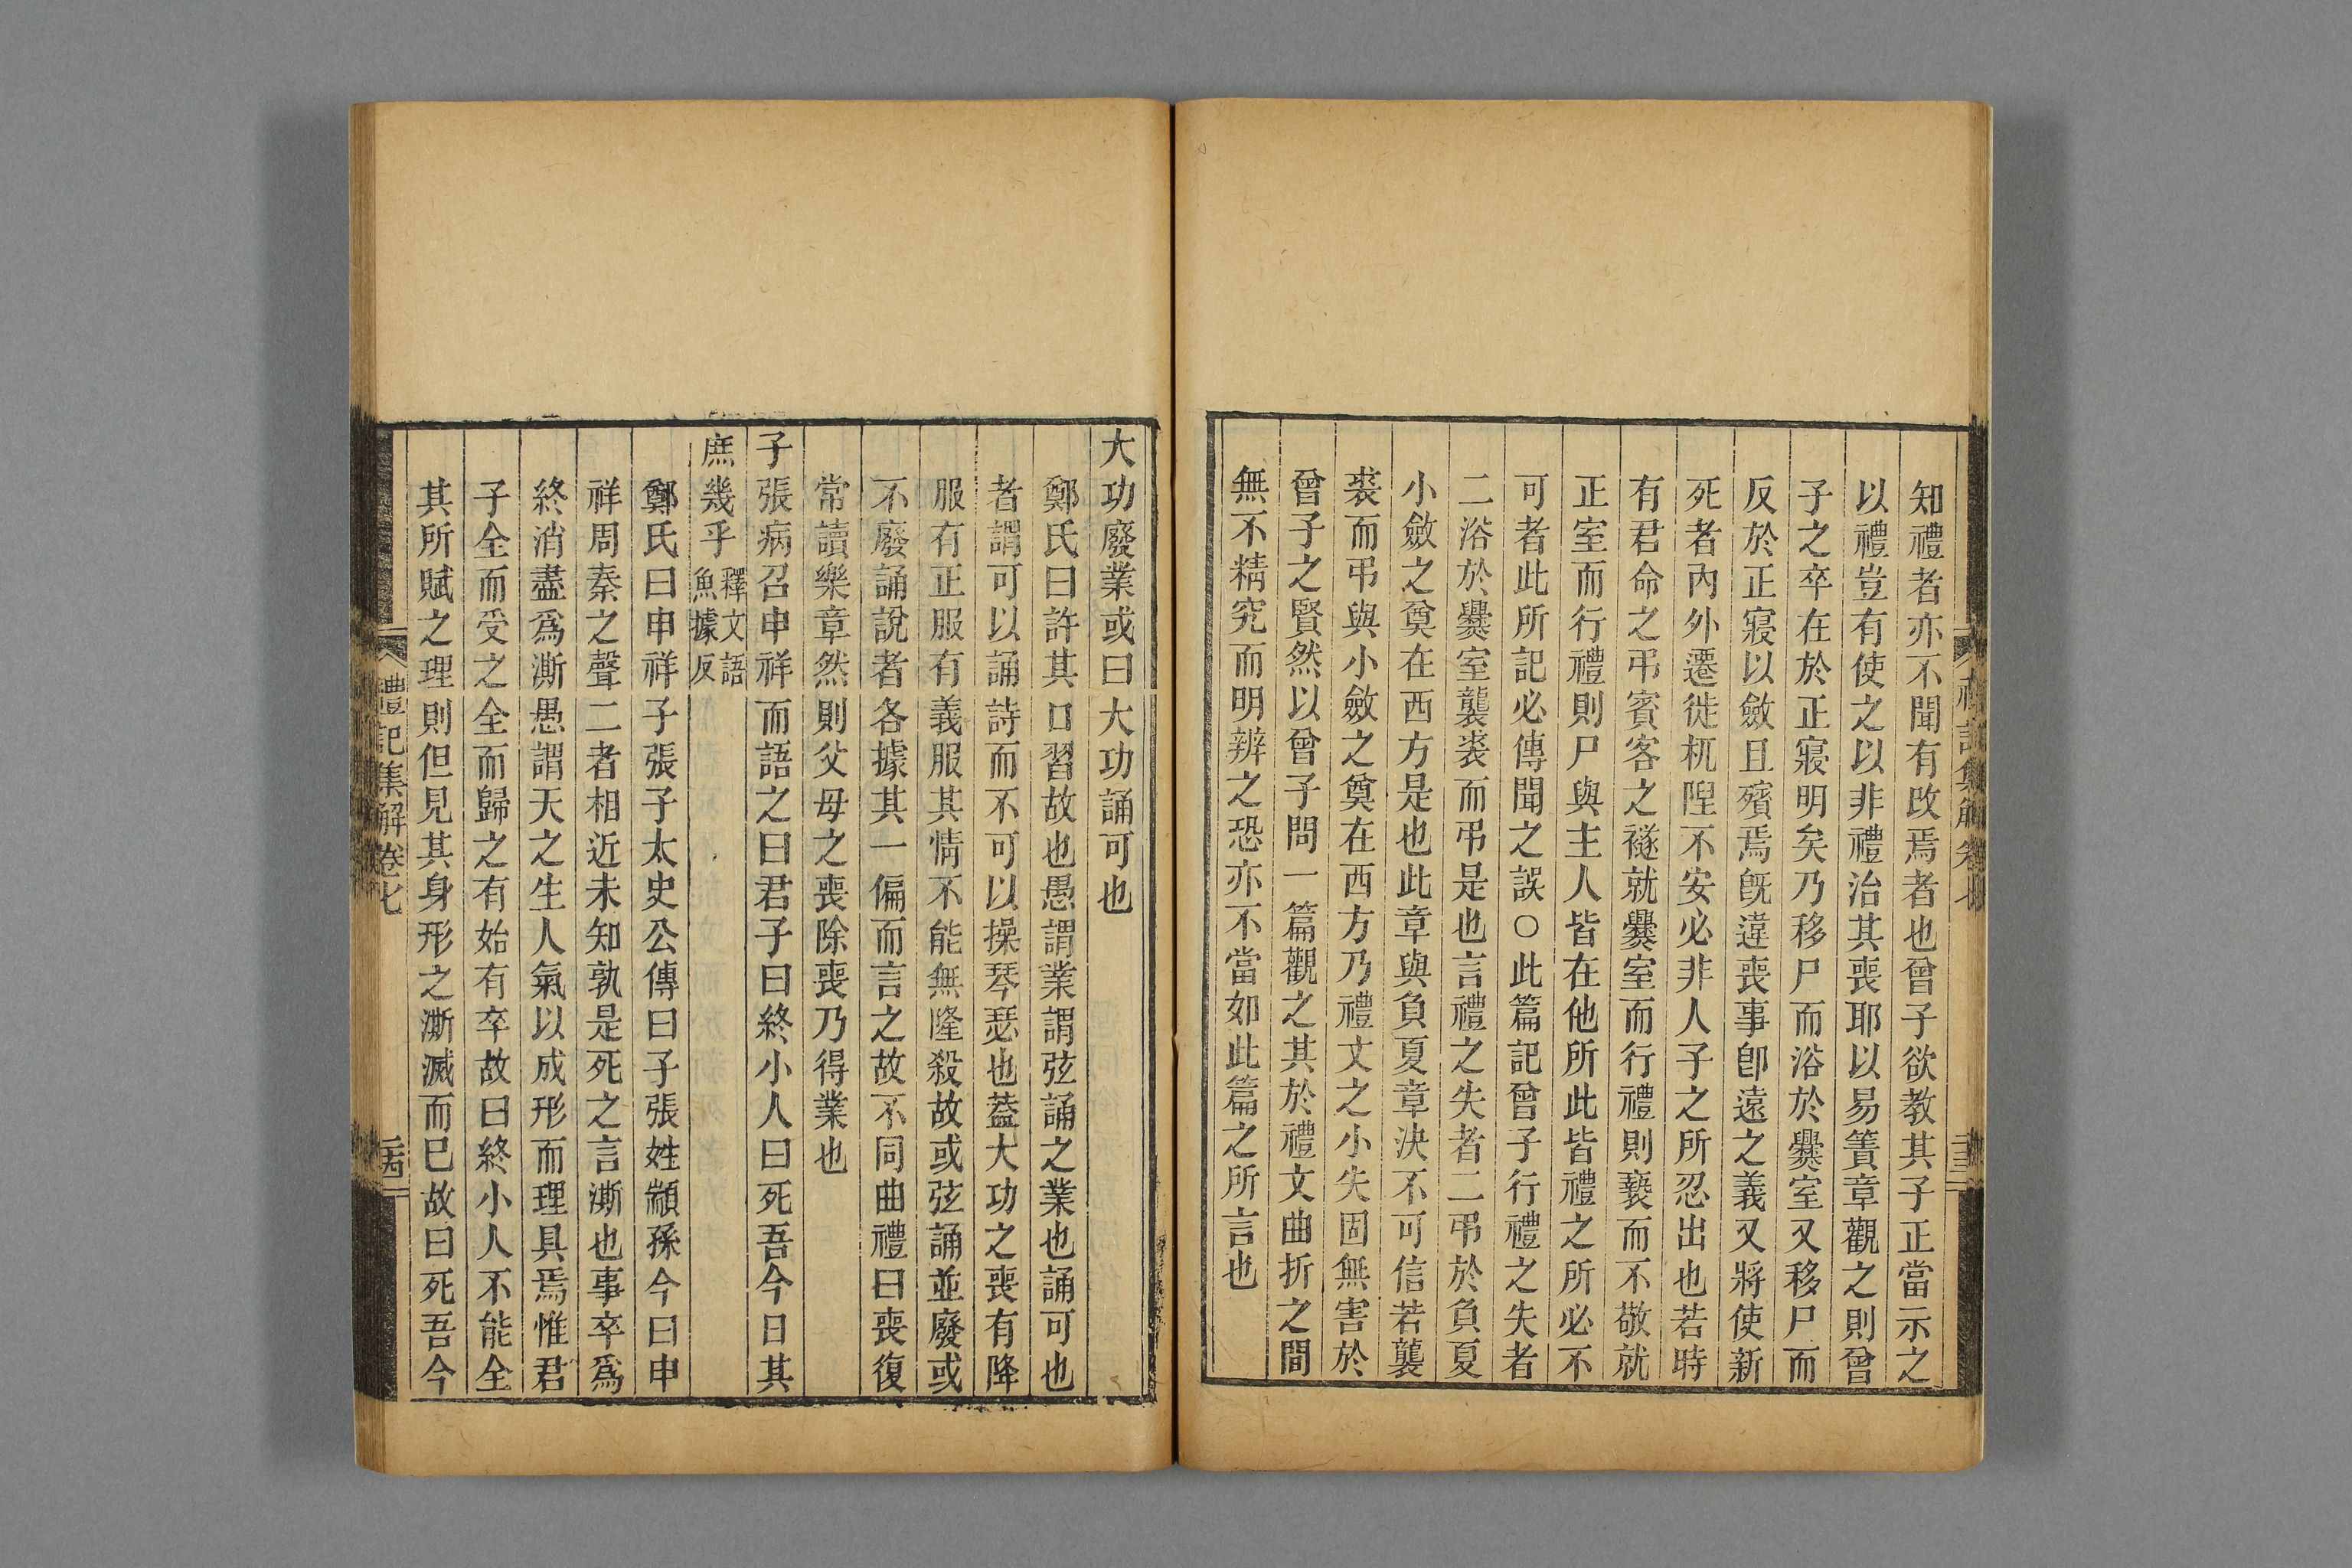 知禮者亦不聞有改焉者也曾子欲教其子正當示之
以禮豈有使之以非禮治其喪耶以易簀章觀之則曾
子之卒在於正寢明矣乃移尸而浴於爨室又移尸而
反於正寢以斂且殯焉旣違喪事卽遠之義又將使新
死者內外遷徙杌隉不安必非人子之所忍出也若時
有君命之弔賓客之襚就爨室而行禮則褻而不敬就
正室而行禮則尸與主人皆在他所此皆禮之所必不
可者此所記必傳聞之誤○此篇記曾子行禮之失者
二浴於爨室襲裘而弔是也言禮之失者二弔於負夏
小斂之奠在西方是也此章與負夏章決不可信若襲
裘而弔與小斂之奠在西方乃禮文之小失固無害於
曾子之賢然以曾子問一篇觀之其於禮文曲折之間
無不精究而明辨之恐亦不當如此篇之所言也
禮記集解卷七
二十三
大功廢業或曰大功誦可也
鄭氏曰許其口習故也愚謂業謂弦誦之業也誦可也
者謂可以誦詩而不可以操琴瑟也葢大功之喪有降
服有正服有義服其情不能無隆殺故或弦誦並廢或
不廢誦說者各據其一偏而言之故不同曲禮曰喪復
常讀樂章然則父母之喪除喪乃得業也
子張病召申祥而語之曰君子曰終小人曰死吾今日其
庶幾乎釋文語魚據反
鄭氏曰申祥子張子太史公傳曰子張姓顓孫今曰申
祥周秦之聲二者相近未知孰是死之言澌也事卒爲
終消盡爲澌愚謂天之生人氣以成形而理具焉惟君
子全而受之全而歸之有始有卒故曰終小人不能全
其所賦之理則但見其身形之澌滅而已故曰死吾今
禮記集解卷七
二十四